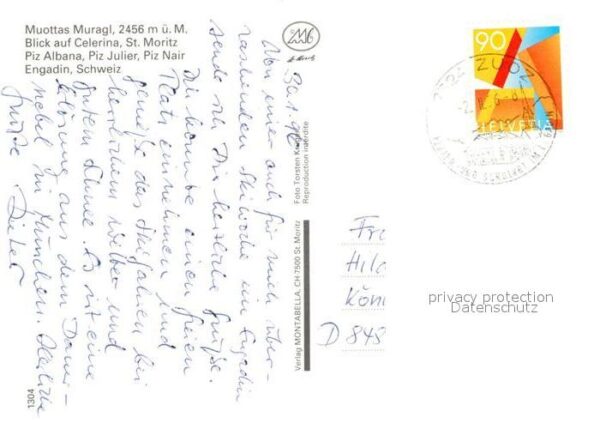 Muottas Muragl, 2456 m ü. M.
Blick auf Celerina, St. Moritz
Piz Albana, Piz Julier, Piz Nair
Engadin, Schweiz
30.1.96
Von einer auch für mich über-
raschenden Skiwoche im Engadin
sende ich Dir herzliche Grüße.
Ich konnte einen freien
Platz einnehmen und
genieße das Skifahren bei
herrlichem Wetter und
gutem Schnee. Es ist eine
Erlösung aus dem Dauer-
nebel in München. Herzliche
Grüße Dieter
1304
Verlag MONTABELLA, CH 7500 St. Moritz
Foto Torsten
Reproduction interdite
90
HELVETIA
ZUOZ
Fr
Hil
Köni
D 845
privacy protection
Datenschutz